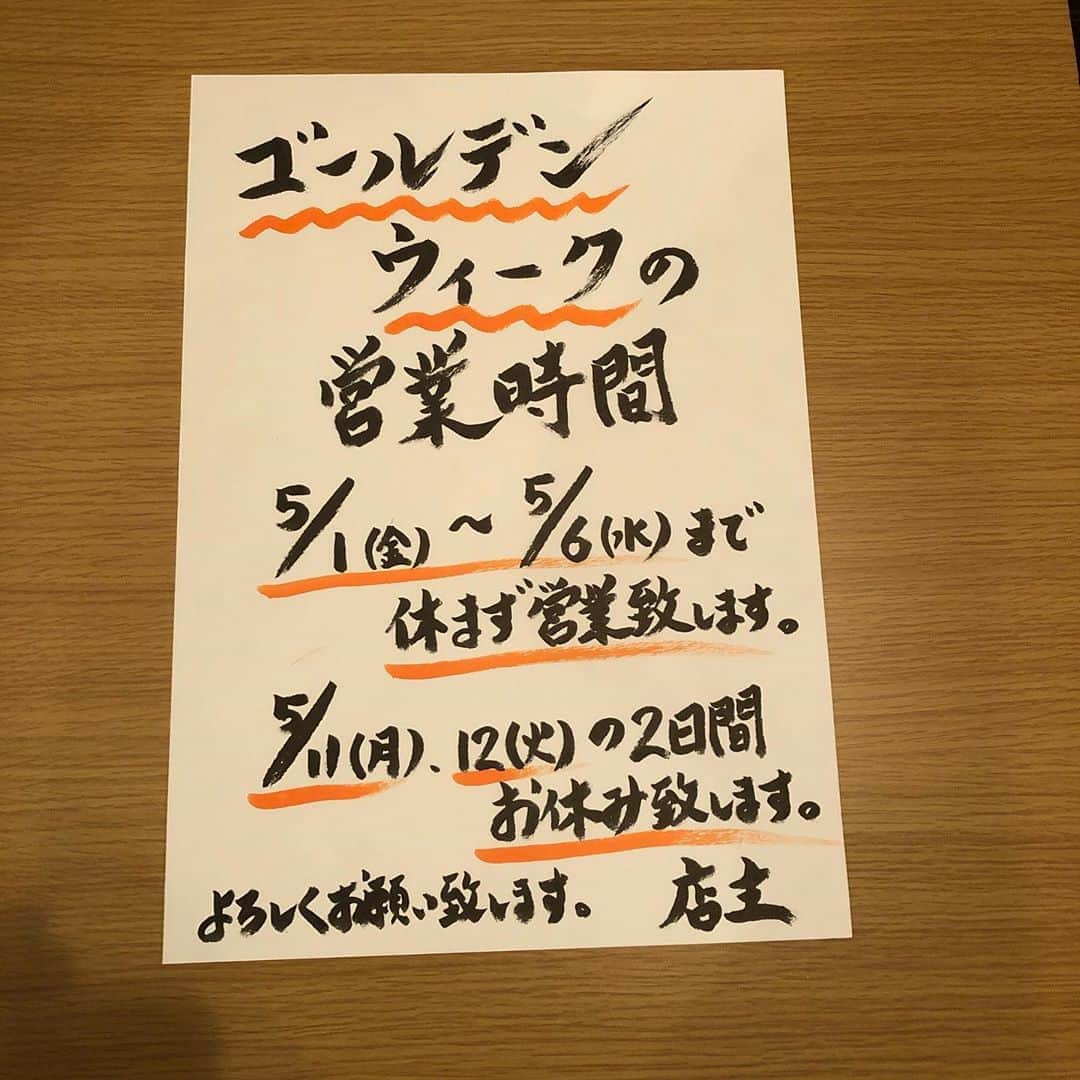 ゴールデン
ウィークの
営業時間
5/1(金)～5/6(水)まで
休まず営業致します。
5/11(月)、12(火)の2日間
お休み致します。
よろしくお願い致します。 店主